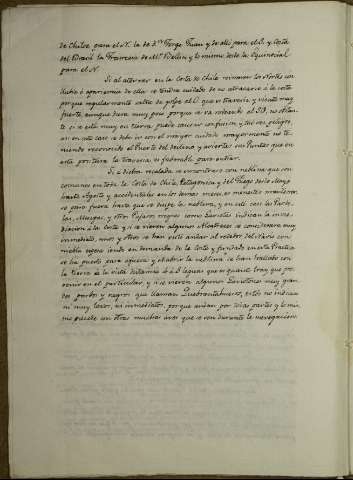 de Chiloe para el N. la de Dn. Jorge Juan y de alli para el S. y Costa
del Brasil la Francesa de Mr. Bellin y lo mismo desde la Equinocial
para el N.
Si al aterrar en la Costa de Chile reinaren los Nortes con
dudio ó apariencia de ellos se tendra cuidado de no atracarse á la costa
porque regularmente salta de golpe al O. que es travesia y viento muy
fuerte, aunque dura muy poco porque se va rodando al SO. no obstan-
te si se está muy en tierra puede causar confusion, y tal vez peligro,
asi en este caso se debe ir con el mayor cuidado mayormente no te-
niendo reconocido el Puerto del destino y abiertas sus Puntas que en
esta positura la Travesia es favorable para entrar.
Si á dicha recalada se encontrare con neblina que son
comunes en toda la Costa de Chile, Patagonica y del Fuego desde Mayo
hasta Agosto y accidentales en los demas meses, es menester mantener-
se para fuera hasta que se disipe la neblina, y en este caso las Parde-
las, y otros Pajaros negros como Zarcetas indican la inme-
diacion á la Costa y si se vieren algunos Alcatraces se considerara muy
inmediato, unos y otros se han visto andar al rededor del Navio con
niebla espesa iendo en demanda de la Costa y fundado en esta Practica
se ha puesto para aguas y al abrir la neblina se han hallado con
la tierra á la vista distancia de 6 á 8 leguas que es quanto hay que pre-
venir en el particular, y si se vieren algunos muy gran-
des pardos y negros que llaman Quebrantahuesos, estos no indican
ni muy lexos, ni inmediatos, porque andan por todas partes y lo mis-
mo sucede con otras muchas aves que se ven durante la navegacion.